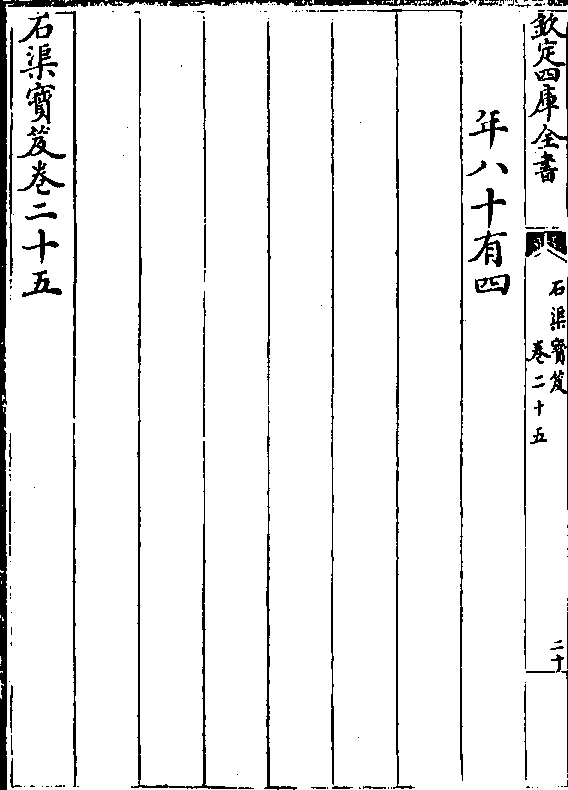 欽定四庫全書
石渠寶笈
卷二十五
二十
年八十有四
石渠寶笈卷二十五